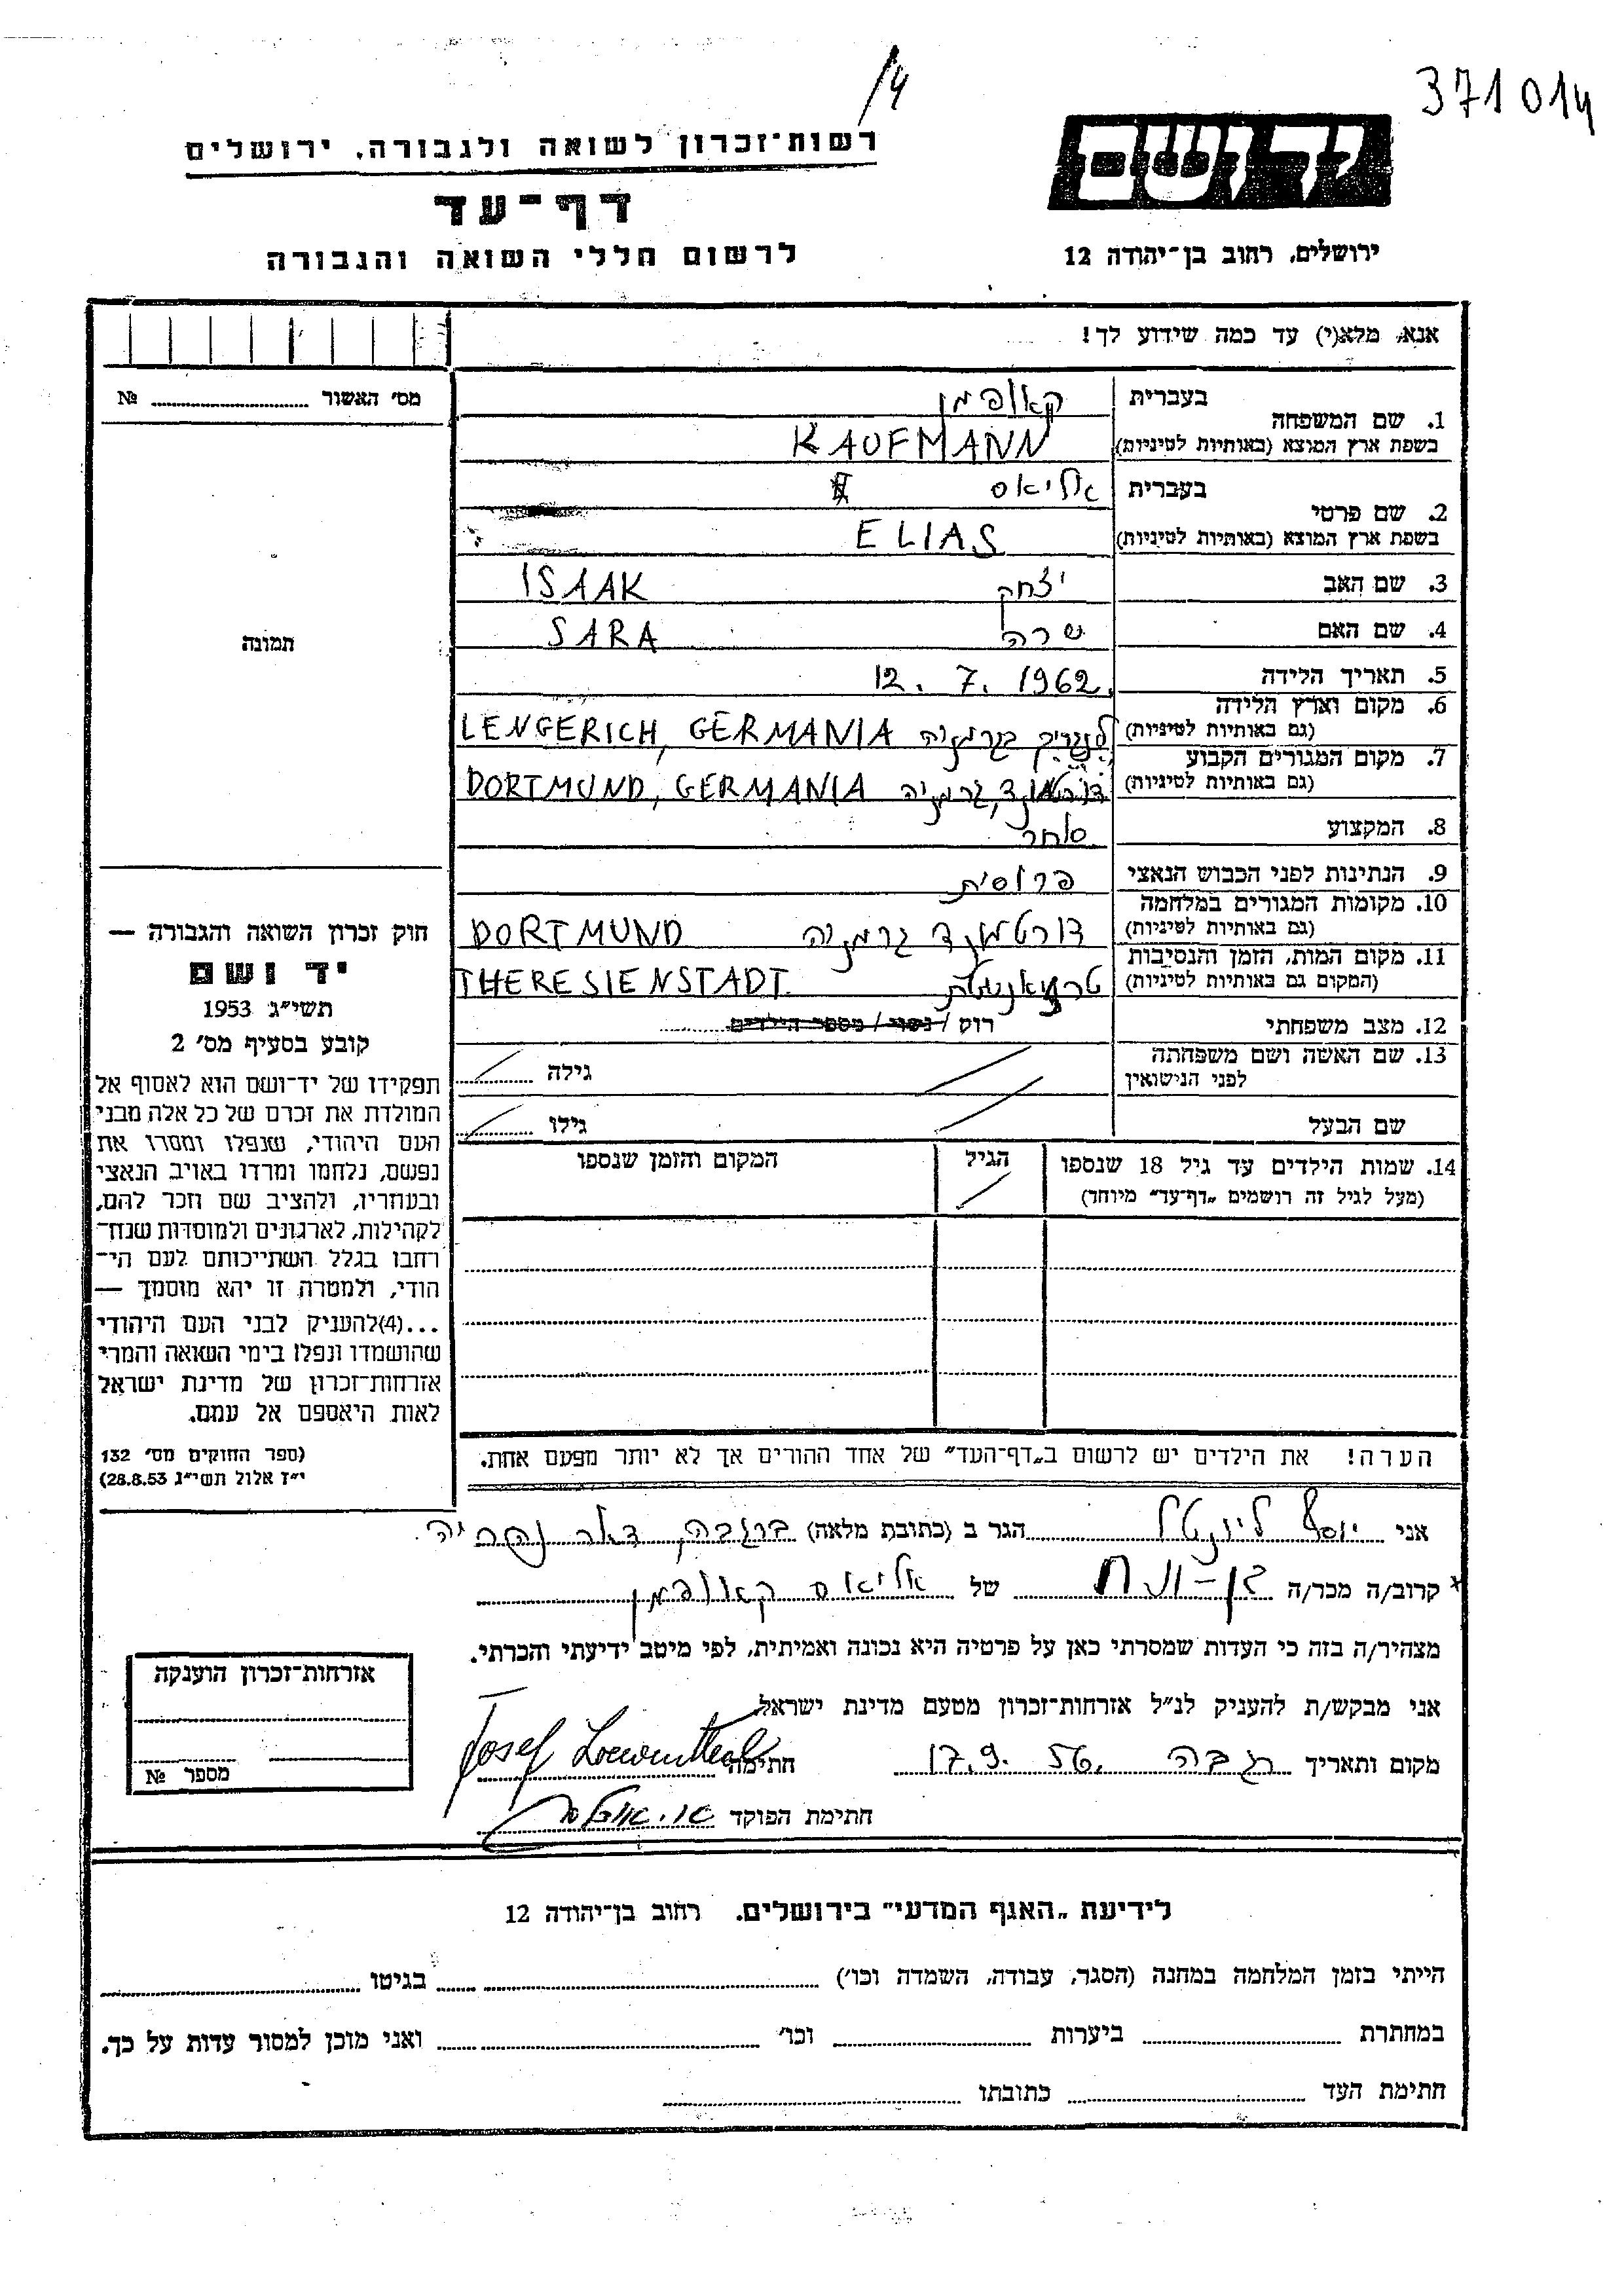 371014
/4
יד ושם
ירושלים, רחוב בן־יהודה 12
רשות־זכרון לשואה ולגבורה, ירושלים
דף־עד
לרשום חללי השואה והגבורה
אנא, מלא(י) עד כמה שידוע לך!
1. שם המשפחה בעברית קאופמן
בשפת ארץ המוצא (באותיות לטיניות) KAUFMANN
2. שם פרטי בעברית אליאס
בשפת ארץ המוצא (באותיות לטיניות) ELIAS
3. שם האב יצחק ISAAK
4. שם האם שרה SARA
5. תאריך הלידה 12. 7. 1962.
6. מקום וארץ הלידה
(גם באותיות לטיניות) גרמניה LENGERICH, GERMANIA
7. מקום המגורים הקבוע
(גם באותיות לטיניות) דורטמונד, גרמניה DORTMUND, GERMANIA
8. המקצוע סוחר
9. הנתינות לפני הכבוש הנאצי פרוסית
10. מקומות המגורים במלחמה
(גם באותיות לטיניות) דורטמונד גרמניה DORTMUND
11. מקום המות, הזמן והנסיבות
(המקום גם באותיות לטיניות) THERESIENSTADT
12. מצב משפחתי רוק / נשוי / מספר הילדים
13. שם האשה ושם משפחתה
לפני הנישואין גילה
שם הבעל גילו
14. שמות הילדים עד גיל 18 שנספו הגיל המקום והזמן שנספו
(מעל לגיל זה רושמים „דף־עד” מיוחד)
הערה! את הילדים יש לרשום ב„דף־העד” של אחד ההורים אך לא יותר מפעם אחת.
מס׳ האשור №
תמונה
חוק זכרון השואה והגבורה —
יד ושם
תשי״ג 1953
קובע בסעיף מס׳ 2
תפקידו של יד־ושם הוא לאסוף אל
המולדת את זכרם של כל אלה מבני
העם היהודי, שנפלו ומסרו את
נפשם, נלחמו ומרדו באויב הנאצי
ובעוזריו, ולהציב שם וזכר להם,
לקהילות, לארגונים ולמוסדות שנח־
רבו בגלל השתייכותם לעם הי־
הודי, ולמטרה זו יהא מוסמך —
...(4)להעניק לבני העם היהודי
שהושמדו ונפלו בימי השואה והמרי
אזרחות־זכרון של מדינת ישראל
לאות היאספם אל עמם.
(ספר החוקים מס׳ 132
י״ז אלול תשי״ג 28.8.53)
אני יוסף הגר ב (כתובת מלאה) ברגבה, דאר נהריה.
קרוב/ה מכר/ה של אליאס קאופמן
מצהיר/ה בזה כי העדות שמסרתי כאן על פרטיה היא נכונה ואמיתית, לפי מיטב ידיעתי והכרתי.
אני מבקש/ת להעניק לנ״ל אזרחות־זכרון מטעם מדינת ישראל.
מקום ותאריך רגבה 17.9.56 חתימה Josef Loewenthal
חתימת הפוקד
אזרחות־זכרון הוענקה
מספר №
לידיעת „האגף המדעי” בירושלים, רחוב בן־יהודה 12
הייתי בזמן המלחמה במחנה (הסגר, עבודה, השמדה וכו׳) בגיטו
במחתרת ביערות וכו׳ ואני מוכן למסור עדות על כך.
חתימת העד כתובתו